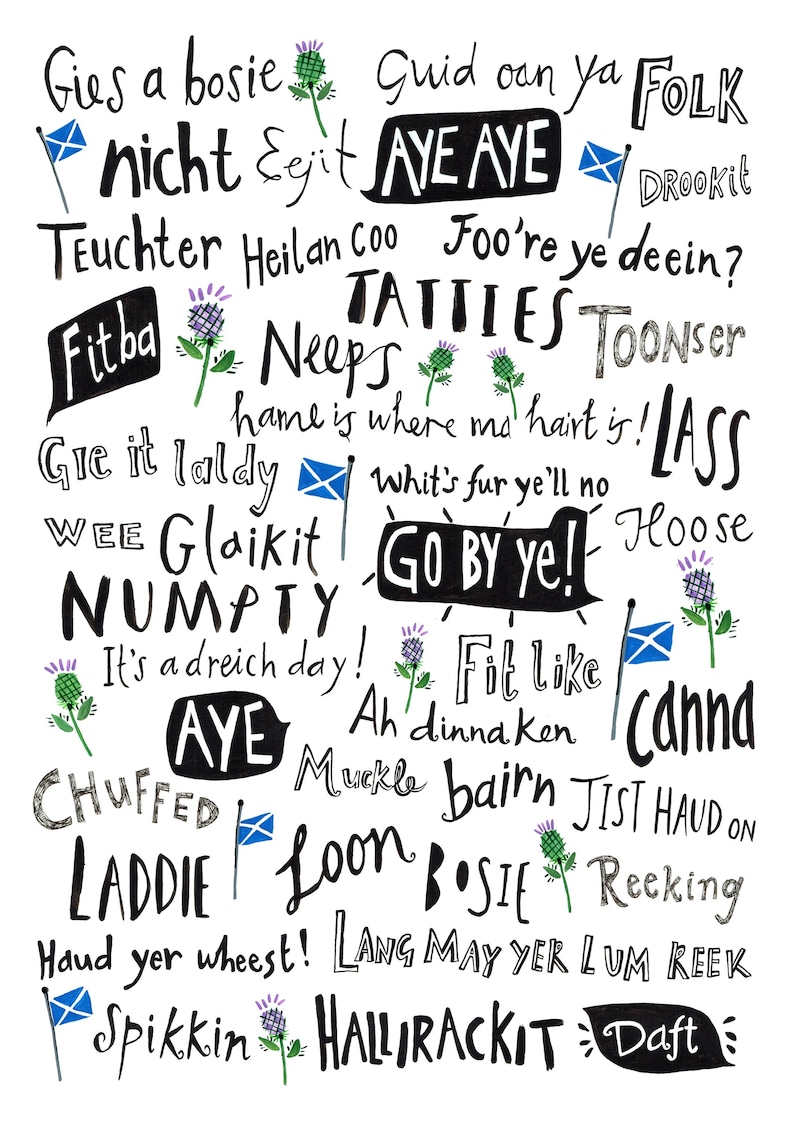 Gies a bosie
Guid oan ya
FOLK
nicht
Eejit
AYE AYE
DROOKit
TEUchTER
Heilan COO
Foo're ye deein?
TATTIES
Fitba
Neeps
TOONser
hame is where ma hairt is!
LASS
GIE it laldy
Whit's fur ye'll no
GO BY ye!
WEE
Glaikit
Hoose
NUMPTY
It's a dreich day!
Fit like
AYE
Ah dinna ken
canna
CHUFFED
Muckle
bairn
JIST HAUD ON
LADDIE
Loon
BOSIE
Reeking
Haud yer wheest!
LANG MAY YER LUM REEK
Spikkin
HALLIRACKIT
Daft